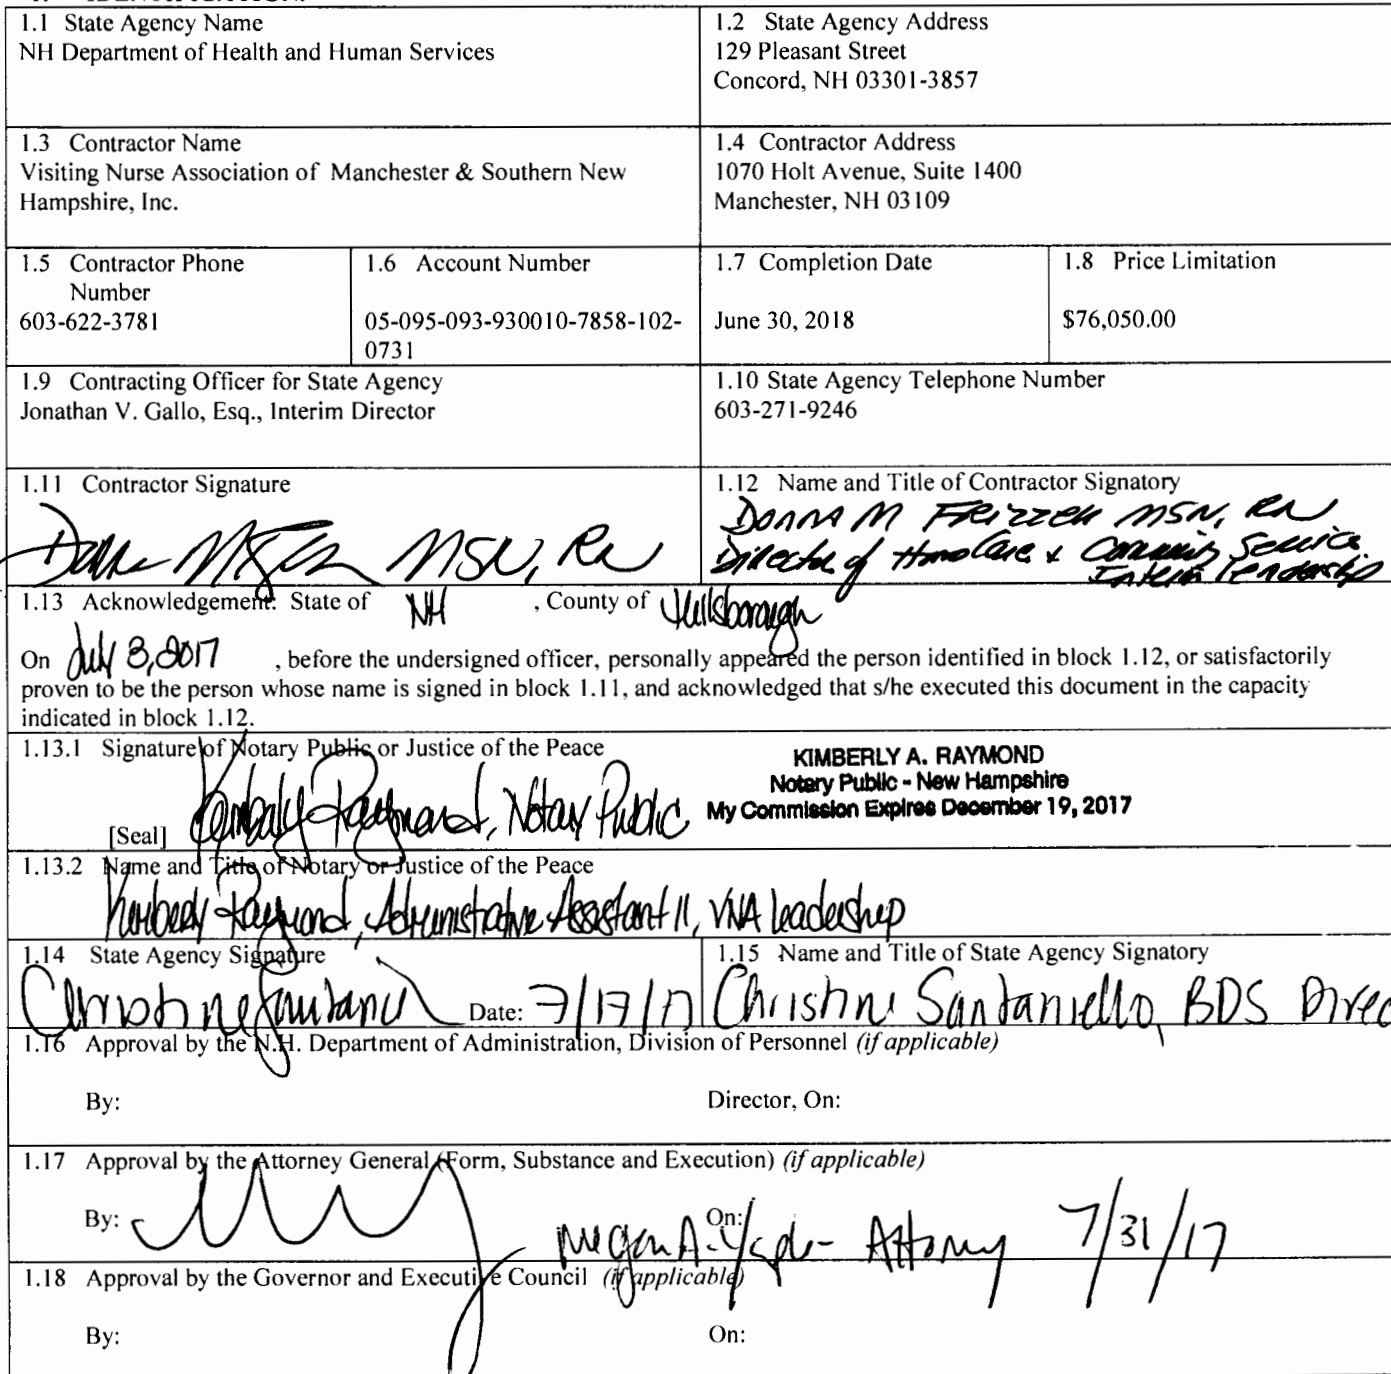 1.1 State Agency Name
NH Department of Health and Human Services
1.2 State Agency Address
129 Pleasant Street
Concord, NH 03301-3857
1.3 Contractor Name
Visiting Nurse Association of Manchester & Southern New
Hampshire, Inc.
1.4 Contractor Address
1070 Holt Avenue, Suite 1400
Manchester, NH 03109
1.5 Contractor Phone
Number
603-622-3781
1.6 Account Number
05-095-093-930010-7858-102-
0731
1.7 Completion Date
June 30, 2018
1.8 Price Limitation
$76,050.00
1.9 Contracting Officer for State Agency
Jonathan V. Gallo, Esq., Interim Director
1.10 State Agency Telephone Number
603-271-9246
1.11 Contractor Signature
MSN, RN
1.12 Name and Title of Contractor Signatory
Donna M Frizzell MSN, RN
Director of HomeCare & Community Service
Interim Leadership
1.13 Acknowledgement: State of NH , County of Hillsborough
On July 3, 2017 , before the undersigned officer, personally appeared the person identified in block 1.12, or satisfactorily
proven to be the person whose name is signed in block 1.11, and acknowledged that s/he executed this document in the capacity
indicated in block 1.12.
1.13.1 Signature of Notary Public or Justice of the Peace
Kimberly Raymond, Notary Public
[Seal]
KIMBERLY A. RAYMOND
Notary Public - New Hampshire
My Commission Expires December 19, 2017
1.13.2 Name and Title of Notary or Justice of the Peace
Kimberly Raymond, Administrative Assistant II, VNA leadership
1.14 State Agency Signature
Christine Santaniello Date: 7/17/17
1.15 Name and Title of State Agency Signatory
Christine Santaniello, BDS Direc
1.16 Approval by the N.H. Department of Administration, Division of Personnel (if applicable)
By: Director, On:
1.17 Approval by the Attorney General (Form, Substance and Execution) (if applicable)
By: On:
Megan A. - Attorney 7/31/17
1.18 Approval by the Governor and Executive Council (if applicable)
By: On: